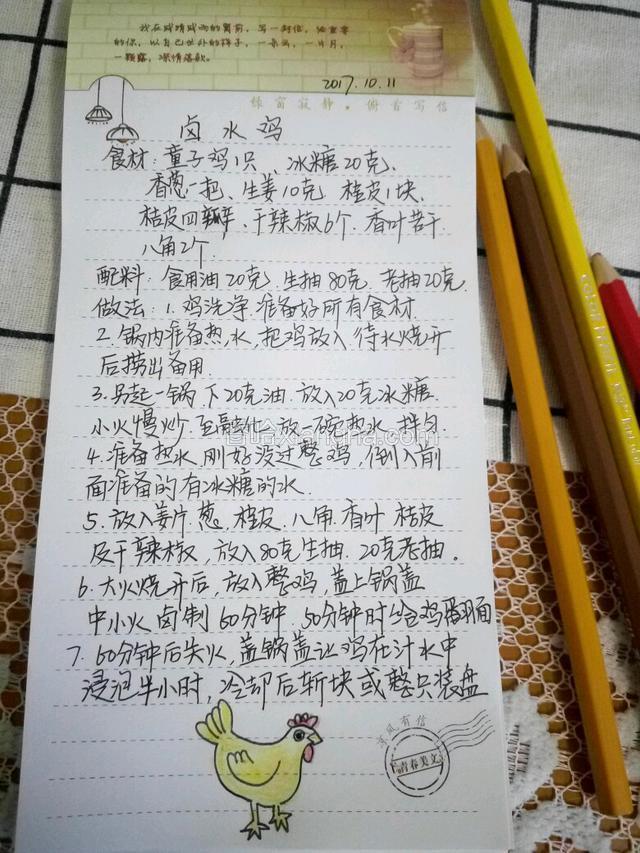 我在或晴或雨的窗前，写一封信，给重要
的你，以自己世外的样子，一朵云，一片月，
一颗露，深情落款。
2017.10.11
绿窗寂静。俯首写信
卤水鸡
食材：童子鸡1只、冰糖20克、
香葱一把、生姜10克 桂皮1块、
桔皮四瓣、干辣椒6个.香叶若干
八角2个.
配料：食用油20克.生抽80克.老抽20克.
做法：1.鸡洗净.准备好所有食材.
2.锅内准备热水，把鸡放入待水烧开
后捞出备用.
3.另起一锅下20克油.放入20克冰糖.
小火慢炒至融化.放一碗热水拌匀.
4.准备热水刚好没过整鸡，倒入前
面准备的有冰糖的水.
5.放入姜片.葱.桂皮.八角.香叶桔皮
及干辣椒，放入80克生抽.20克老抽。
6.大火烧开后，放入整鸡，盖上锅盖
中小火卤制60分钟，50分钟时给鸡翻面
7.60分钟后关火，盖锅盖让鸡在汁水中
浸泡半小时，冷却后斩块或整只装盘
有信
青春美文